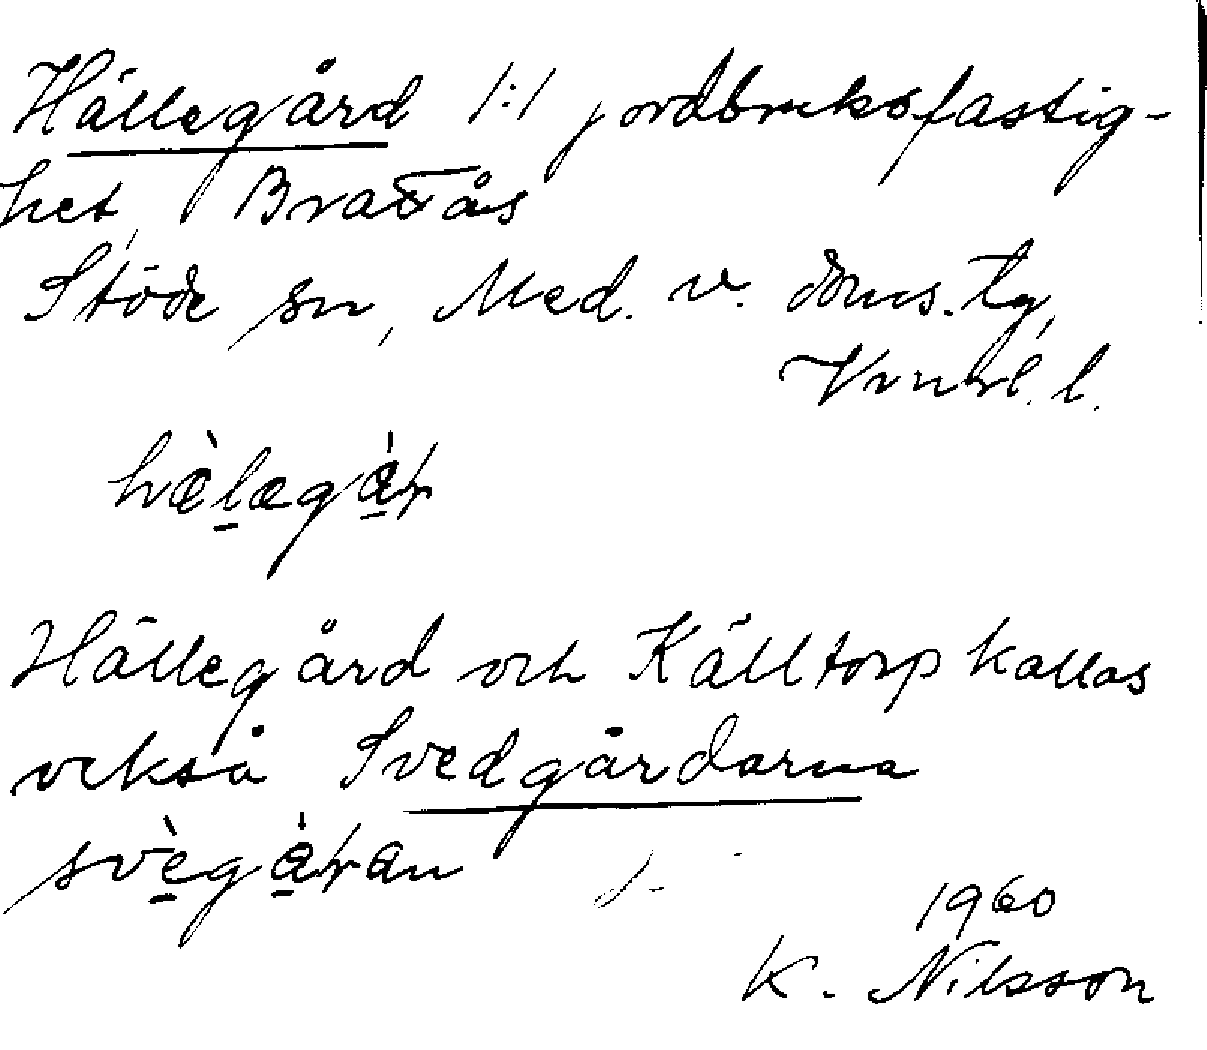 Hällegård 1:1 jordbruksfastig-
het, Brattås
Stöde sn, Med. v. doms. tg,
Vnrl. l.
hèlægår
Hällegård och Källtorp kallas
också Svedgårdarna
svègåran
1960
K. Nilsson